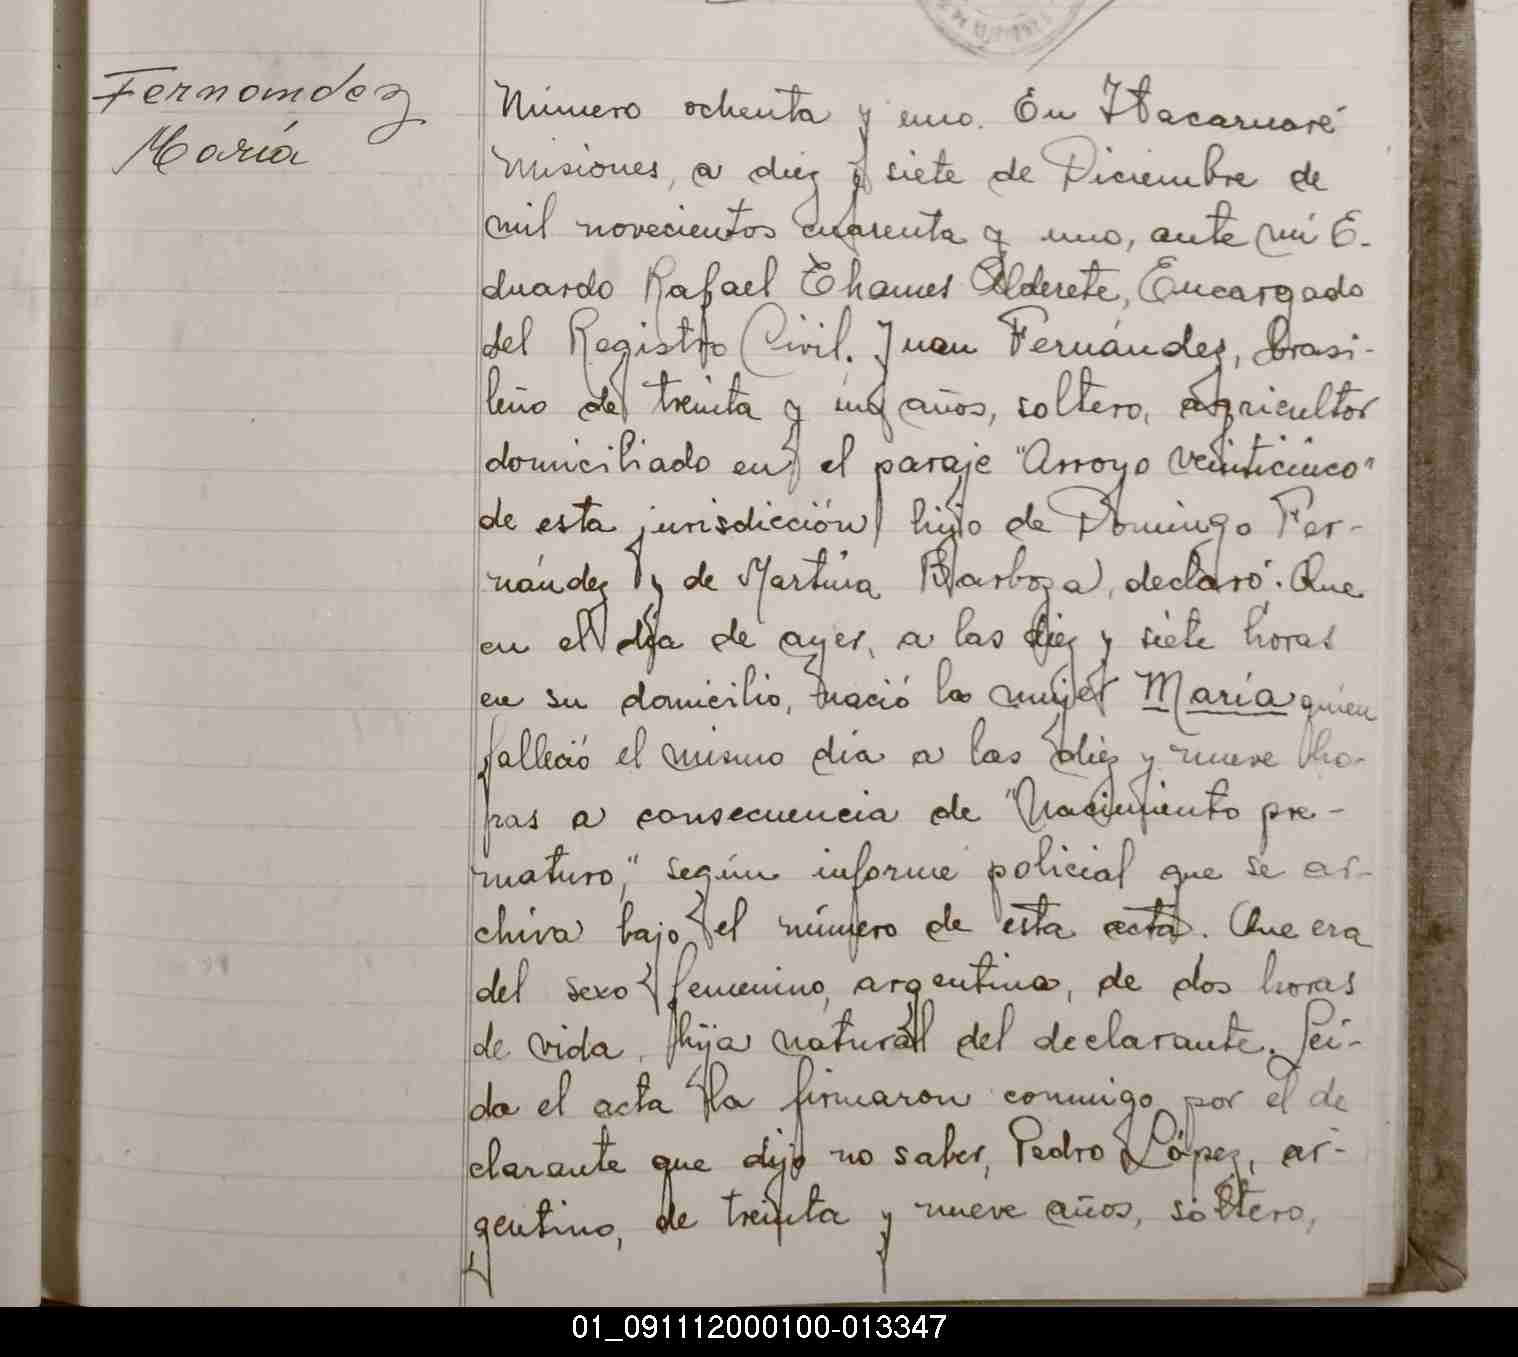 Fernandez
María
Número ochenta y uno. En Itacaruaré
Misiones, a diez y siete de Diciembre de
mil novecientos cuarenta y uno, ante mí E-
duardo Rafael Thames Alderete, Encargado
del Registro Civil. Juan Fernández, brasi-
leño de treinta y un años, soltero, agricultor
domiciliado en el paraje "Arroyo Veinticinco"
de esta jurisdicción hijo de Domingo Fer-
nández y de Martina Barboza, declaró: Que
en el día de ayer, a las diez y siete horas
en su domicilio, nació la mujer María quien
falleció el mismo día a las diez y nueve ho-
ras a consecuencia de "Nacimiento pre-
maturo," según informe policial que se ar-
chiva bajo el número de esta acta. Que era
del sexo femenino, argentina, de dos horas
de vida, hija natural del declarante. Leí-
da el acta la firmaron conmigo por el de
clarante que dijo no saber, Pedro López, ar-
gentino, de treinta y nueve años, soltero,
01_091112000100-013347